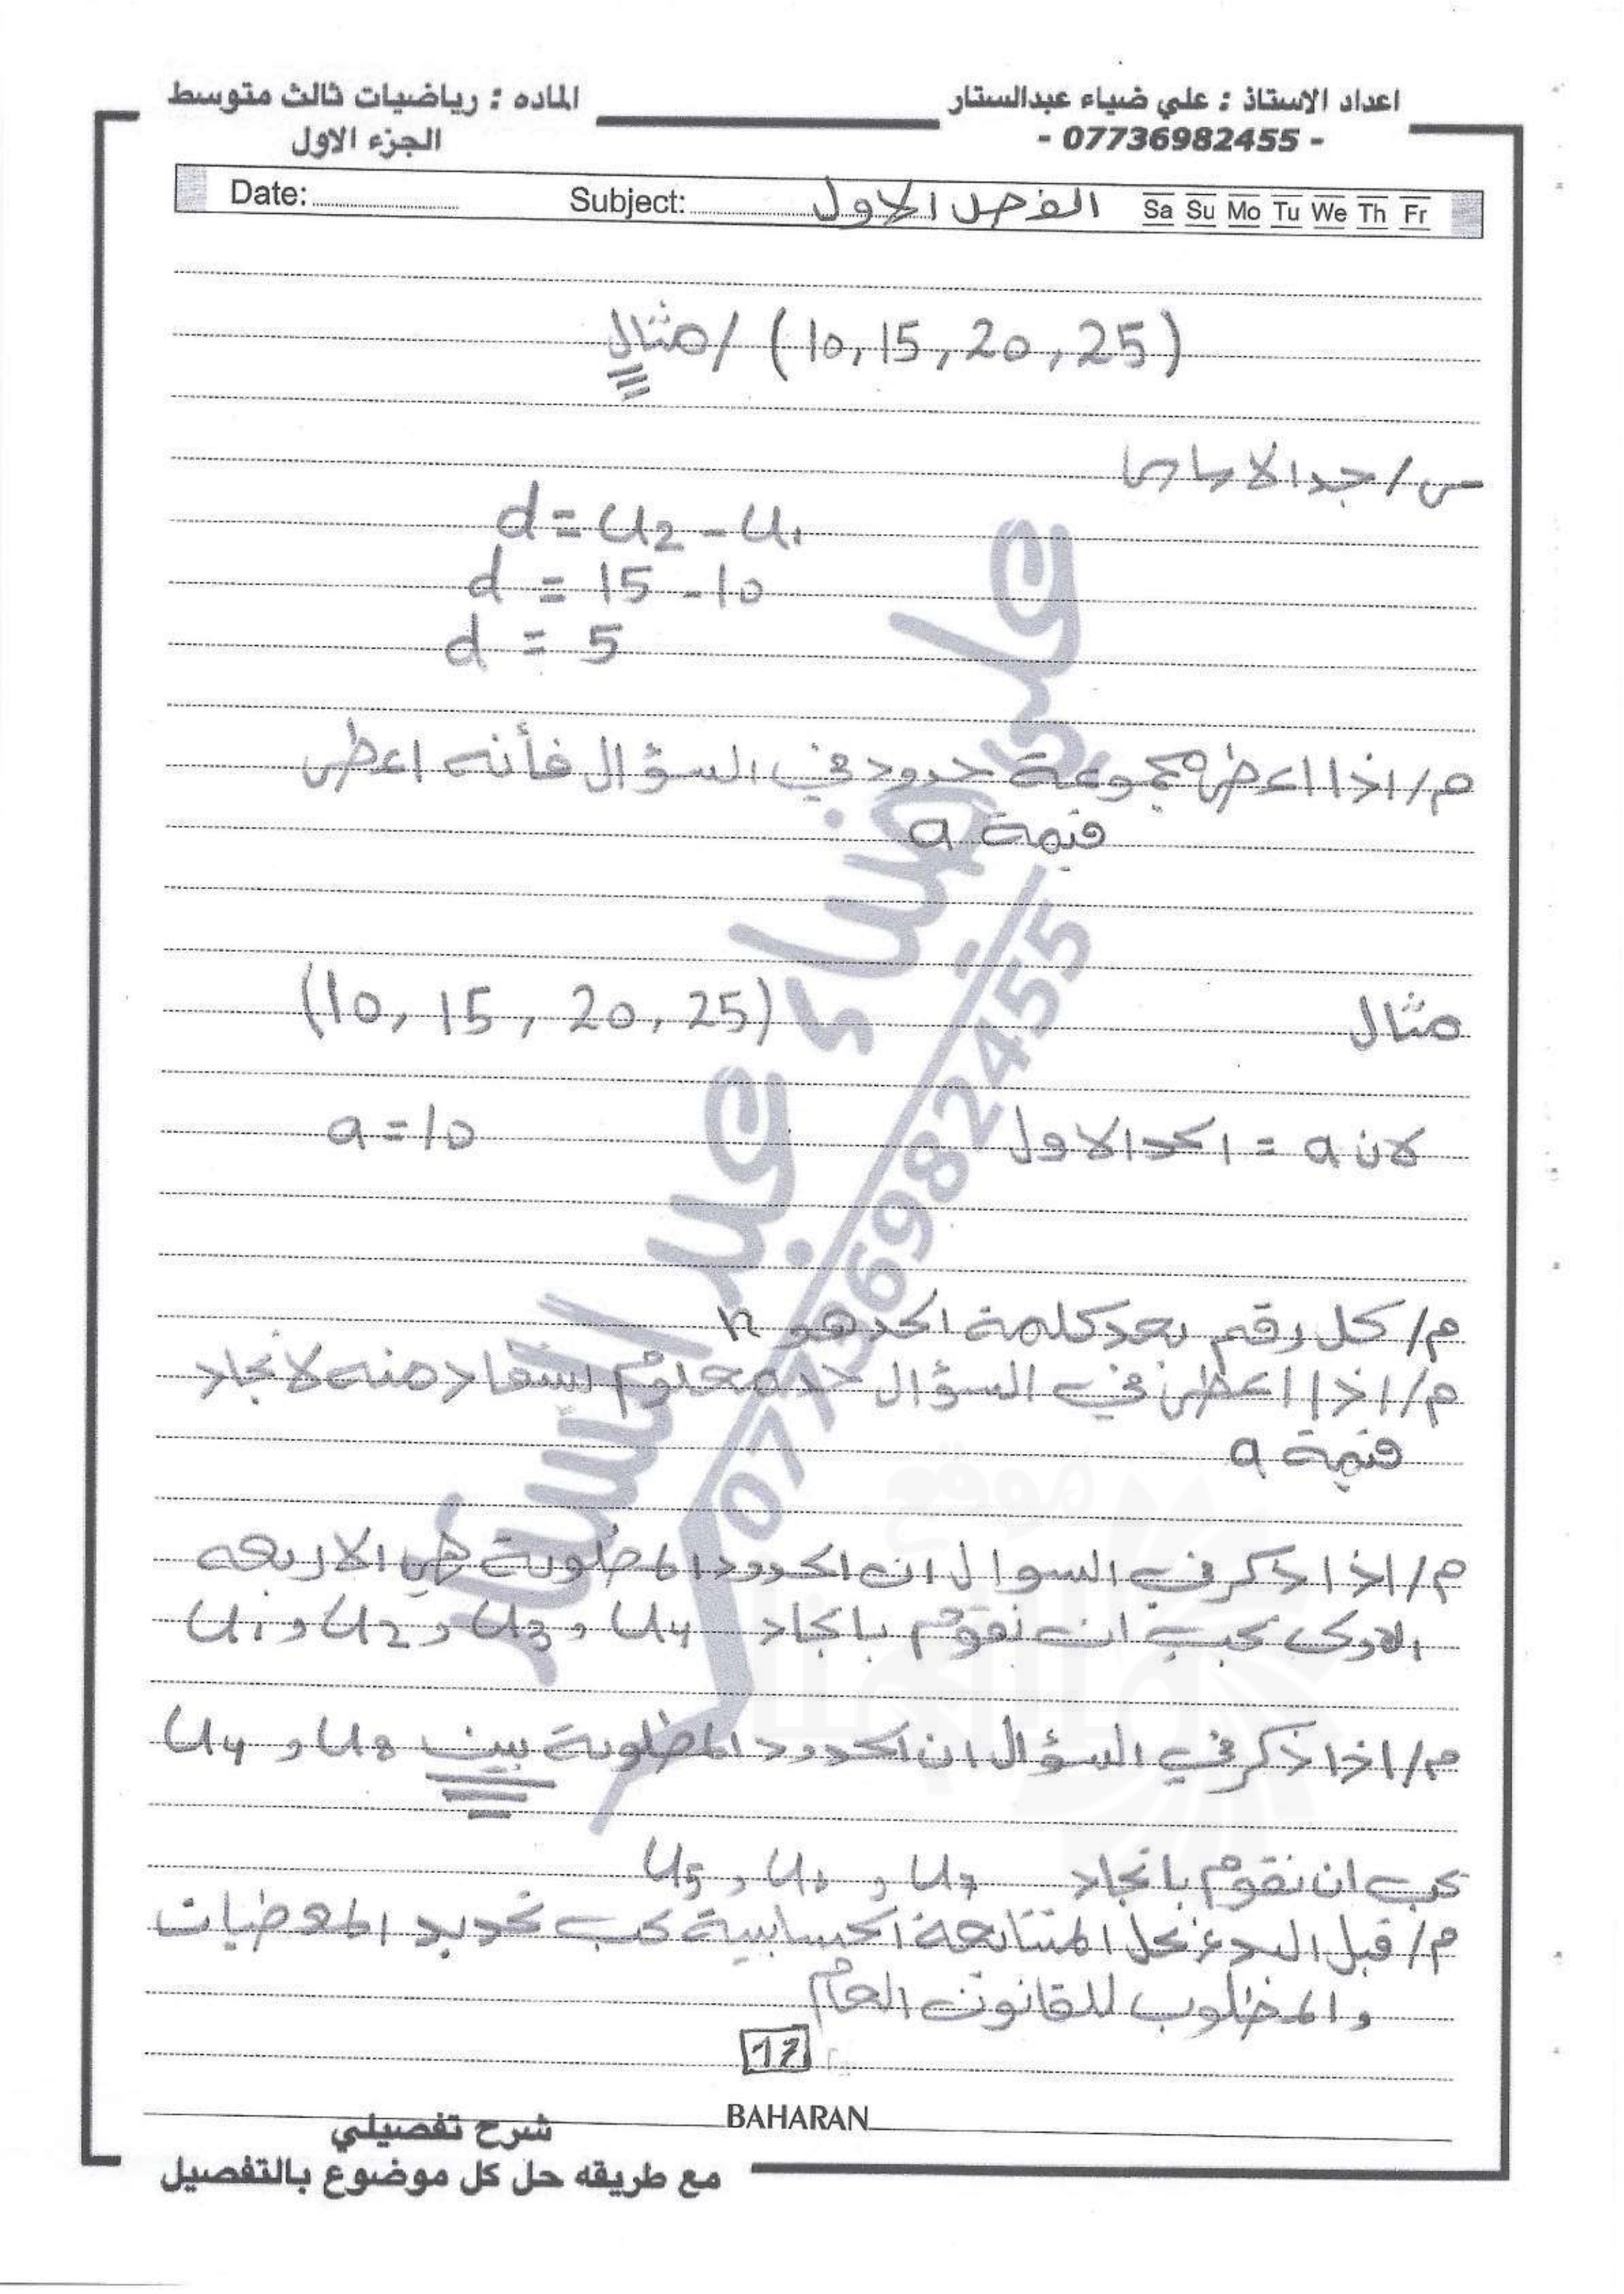 اعداد الاستاذ : علي ضياء عبدالستار
- 07736982455 -
الماده : رياضيات ثالث متوسط
الجزء الاول
Date: Subject: الفصل الاول Sa Su Mo Tu We Th Fr
مثال / (10, 15, 20, 25)
س/ جد الاساس
d = u2 - u1
d = 15 - 10
d = 5
م/ اذا اعطى مجموعة حدود في السؤال فأنه اعطى
قيمة a
مثال (10, 15, 20, 25)
لان a = الحد الاول a = 10
م/ كل رقم بعد كلمة الحد هو n
م/ اذا اعطى في السؤال حد معلوم نستفاد منه لايجاد
قيمة a
م/ اذا ذكر في السوال ان الحدود المطلوبة هي الاربعه
الاولى يجب ان نقوم بايجاد u4 و u3 و u2 و u1
م/ اذا ذكر في السؤال ان الحدود المطلوبة بين u8 و u4
يجب ان نقوم بايجاد u7 و u6 و u5
م/ قبل البدء بحل المتتابعة الحسابية يجب تحديد المعطيات
والمطلوب للقانون العام
17
BAHARAN
شرح تفصيلي
مع طريقه حل كل موضوع بالتفصيل
علي ضياء عبد الستار
07736982455